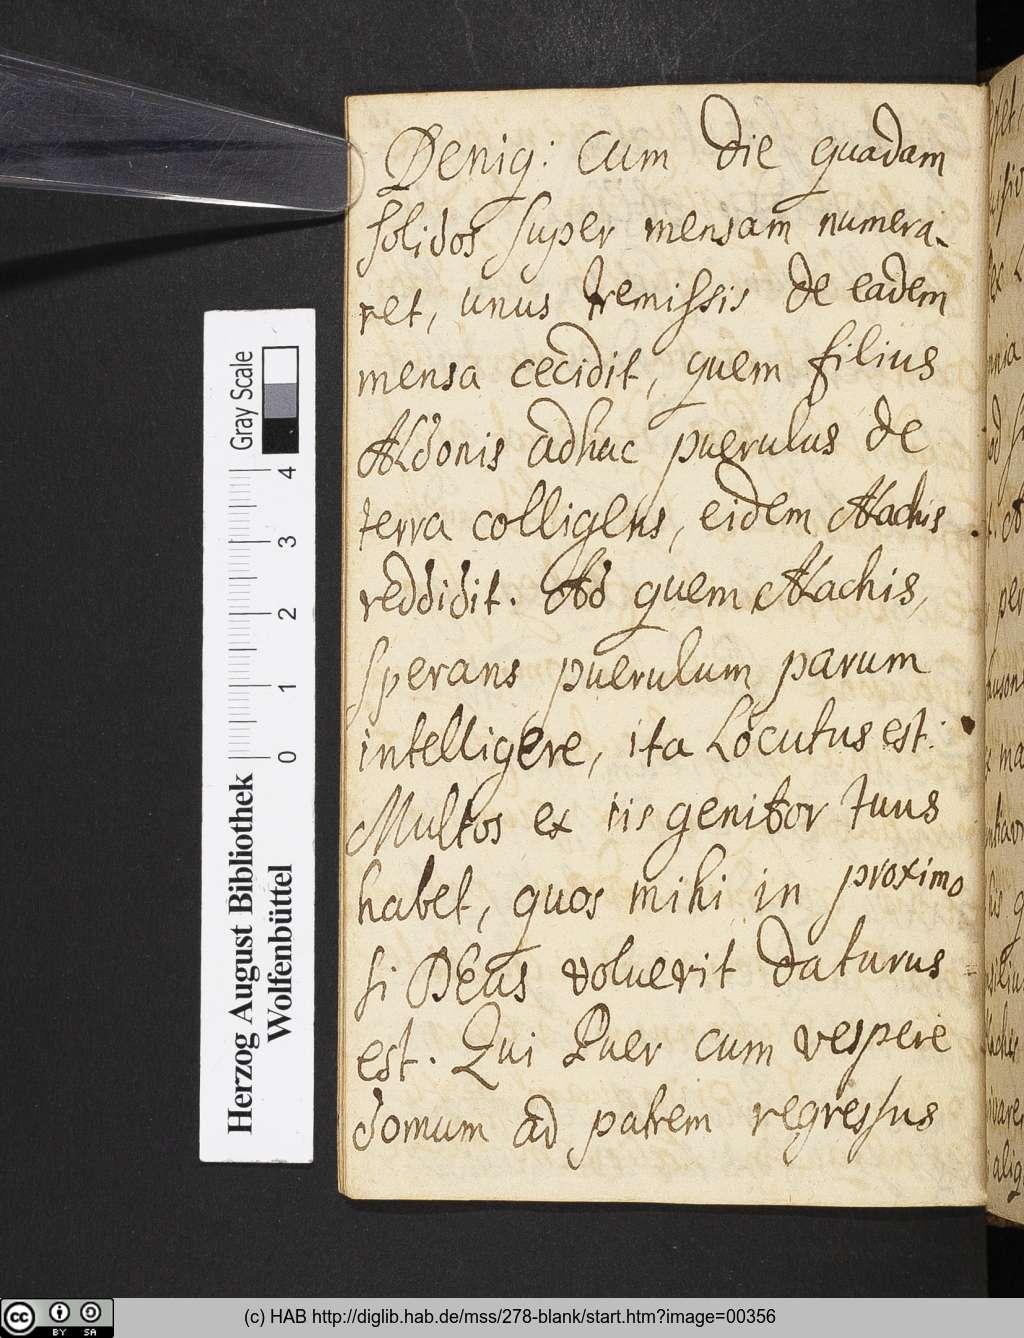 Deniq: cum die quadam
solidos super mensam numera-
ret, unus tremissis de eadem
mensa cecidit, quem filius
Aldonis adhuc puerulus de
terra colligens, eidem Alachis
reddidit. Ad quem Alachis,
sperans puerulum parum
intelligere, ita locutus est:
Multos ex iis genitor tuus
habet, quos mihi in proximo
si DEus voluerit daturus
est. Qui Puer cum vespere
domum ad patrem regressus
Gray Scale
4
3
2
1
0
Herzog August Bibliothek
Wolfenbüttel
(c) HAB http://diglib.hab.de/mss/278-blank/start.htm?image=00356
cc BY SA